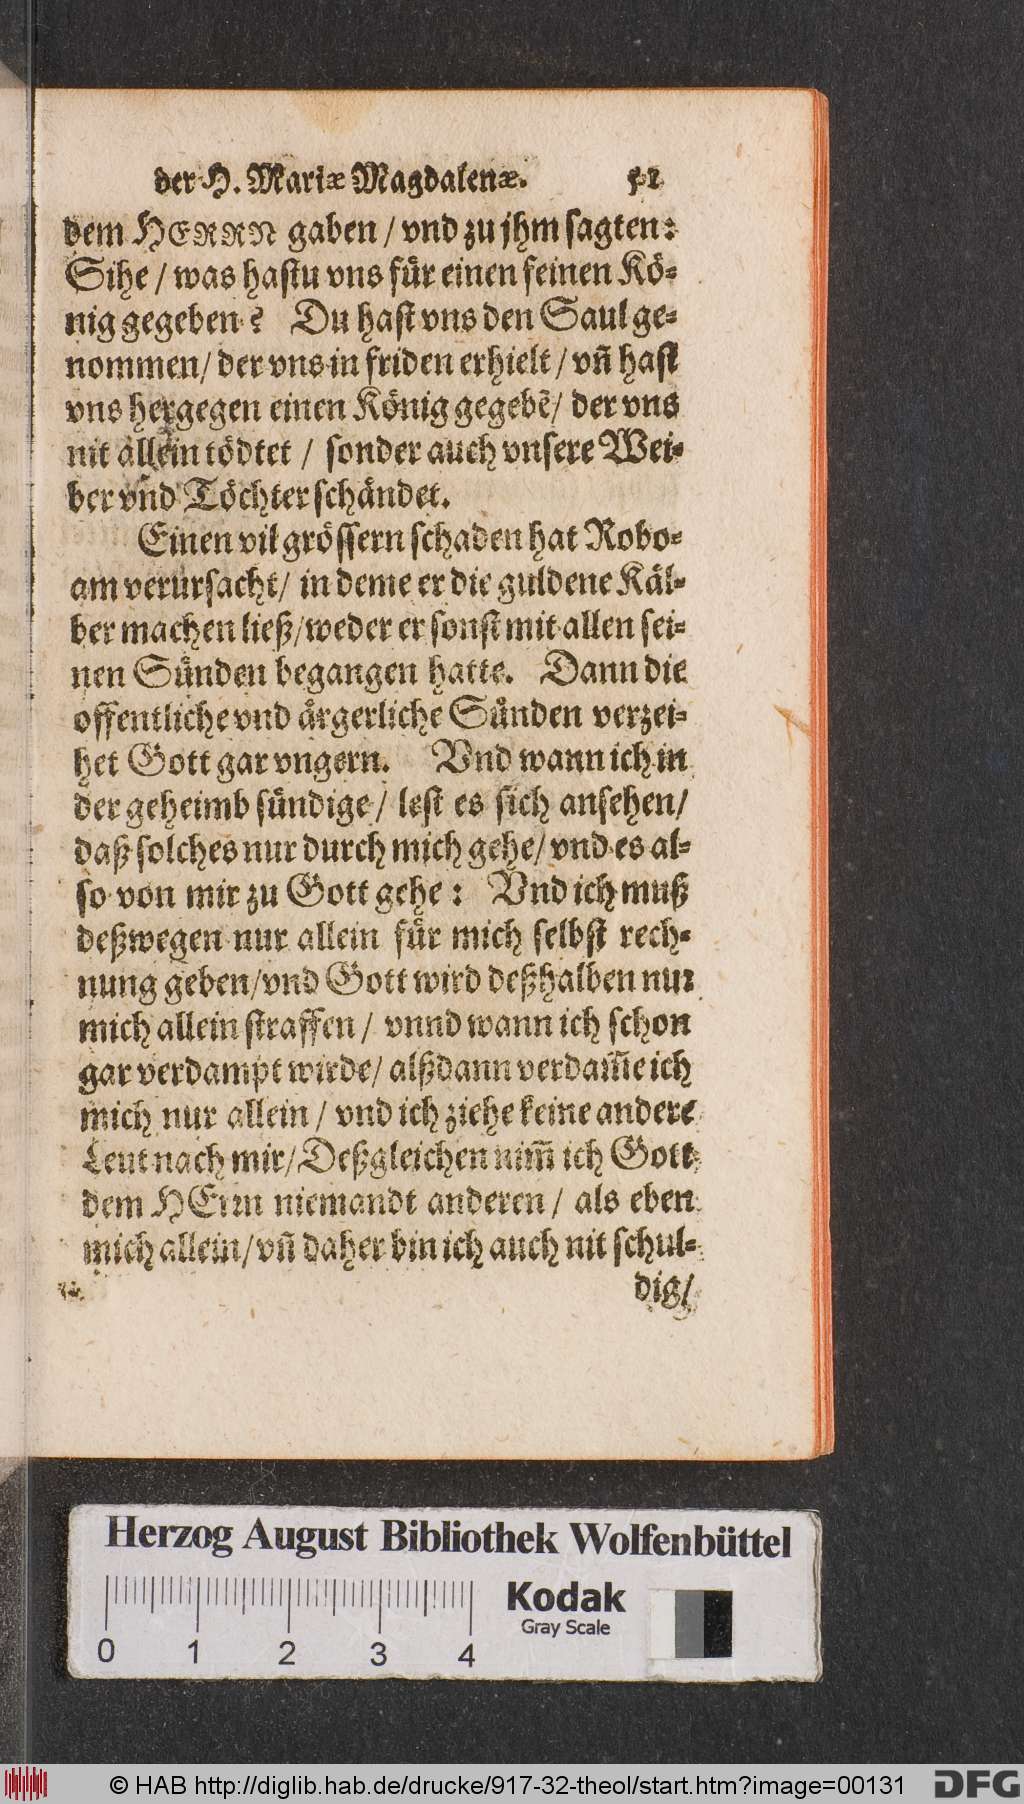 der H. Mariæ Magdalenæ. 51
dem HERRN gaben / vnd zu jhm sagten:
Sihe / was hastu vns fuͤr einen feinen Koͤ⸗
nig gegeben? Du hast vns den Saul ge⸗
nommen / der vns in friden erhielt / vn̄ hast
vns hergegen einen Koͤnig gegebẽ / der vns
nit allein toͤdtet / sonder auch vnsere Wei⸗
ber vnd Toͤchter schaͤndet.
Einen vil groͤssern schaden hat Robo⸗
am verursacht / in deme er die guldene Kaͤl⸗
ber machen ließ / weder er sonst mit allen sei⸗
nen Suͤnden begangen hatte. Dann die
offentliche vnd aͤrgerliche Suͤnden verzei⸗
het Gott gar vngern. Vnd wann ich in
der geheimb suͤndige / lest es sich ansehen /
daß solches nur durch mich gehe / vnd es al⸗
so von mir zu Gott gehe: Vnd ich muß
deßwegen nur allein fuͤr mich selbst rech⸗
nung geben / vnd Gott wird deßhalben nur
mich allein straffen / vnnd wann ich schon
gar verdampt wirde / alßdann verdam̄e ich
mich nur allein / vnd ich ziehe keine andere
Leut nach mir / Deßgleichen nim̄ ich Gott
dem HErrn niemandt anderen / als eben
mich allein / vn̄ daher bin ich auch nit schul⸗
dig /
Herzog August Bibliothek Wolfenbüttel
Kodak
Gray Scale
0 1 2 3 4
© HAB http://diglib.hab.de/drucke/917-32-theol/start.htm?image=00131 DFG